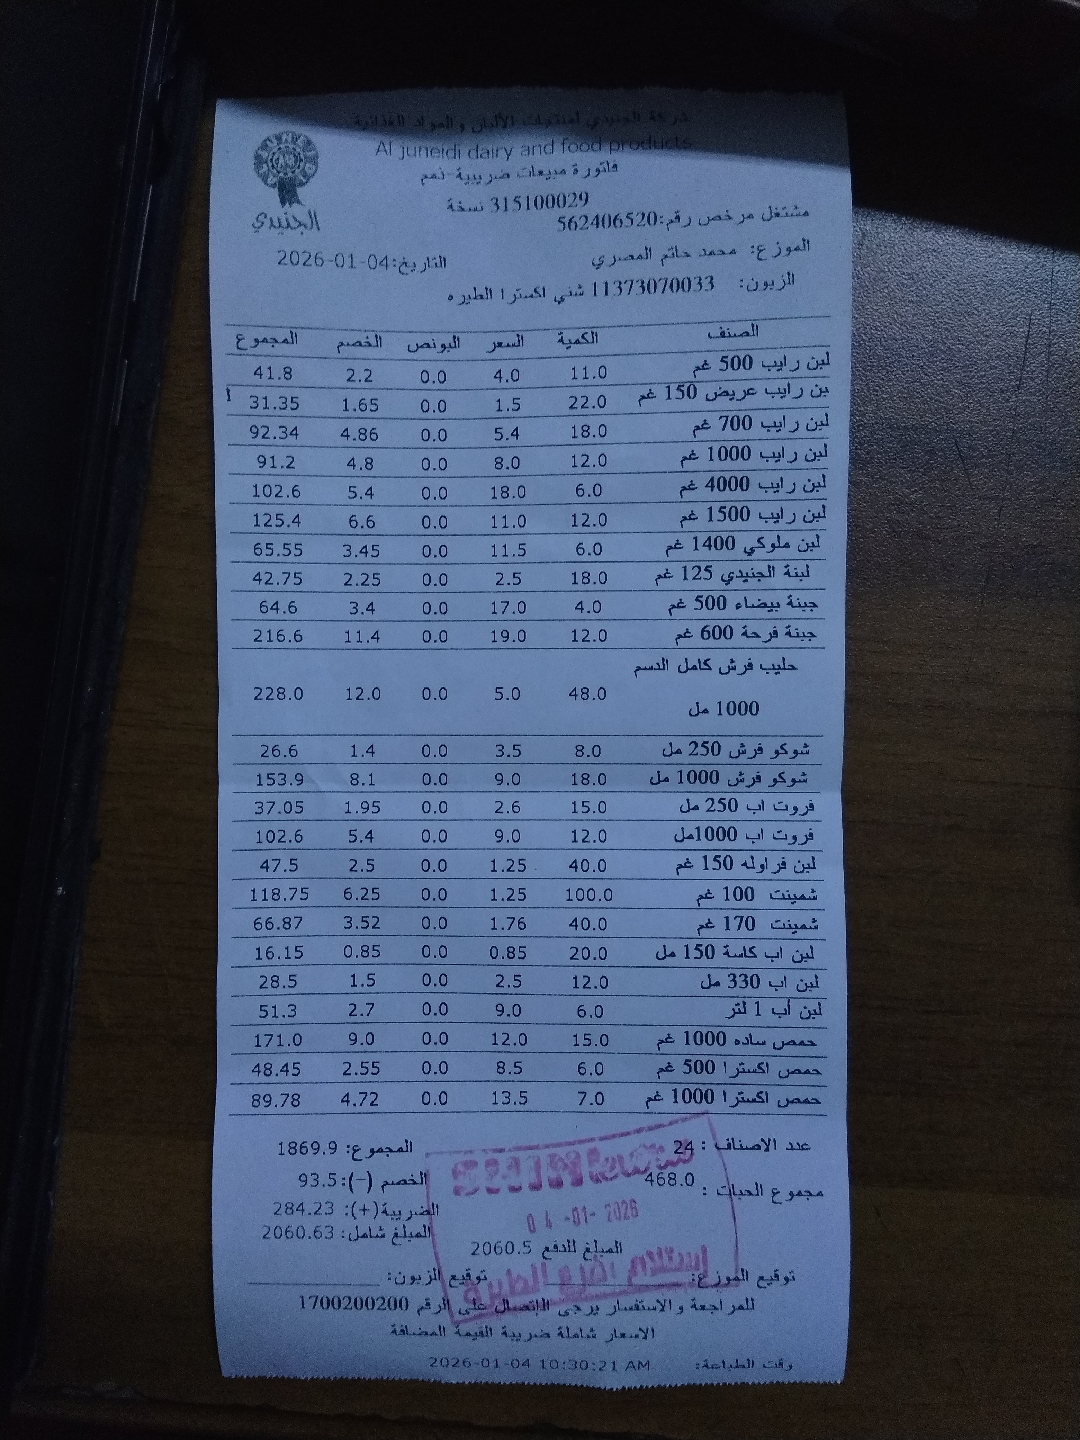 شركة الجنيدي لمنتجات الألبان والمواد الغذائية
Al juneidi dairy and food products
الجنيدي
فاتورة مبيعات ضريبية-ذمم
315100029 نسخة
مشتغل مرخص رقم:562406520
الموزع: محمد حاتم المصري التاريخ:2026-01-04
الزبون: 11373070033 شني اكسترا الطيره
الصنف الكمية السعر البونص الخصم المجموع
لبن رايب 500 غم 11.0 4.0 0.0 2.2 41.8
بن رايب عريض 150 غم 22.0 1.5 0.0 1.65 31.35 ا
لبن رايب 700 غم 18.0 5.4 0.0 4.86 92.34
لبن رايب 1000 غم 12.0 8.0 0.0 4.8 91.2
لبن رايب 4000 غم 6.0 18.0 0.0 5.4 102.6
لبن رايب 1500 غم 12.0 11.0 0.0 6.6 125.4
لبن ملوكي 1400 غم 6.0 11.5 0.0 3.45 65.55
لبنة الجنيدي 125 غم 18.0 2.5 0.0 2.25 42.75
جبنة بيضاء 500 غم 4.0 17.0 0.0 3.4 64.6
جبنة فرحة 600 غم 12.0 19.0 0.0 11.4 216.6
حليب فرش كامل الدسم
1000 مل 48.0 5.0 0.0 12.0 228.0
شوكو فرش 250 مل 8.0 3.5 0.0 1.4 26.6
شوكو فرش 1000 مل 18.0 9.0 0.0 8.1 153.9
فروت اب 250 مل 15.0 2.6 0.0 1.95 37.05
فروت اب 1000مل 12.0 9.0 0.0 5.4 102.6
لبن فراوله 150 غم 40.0 1.25 0.0 2.5 47.5
شمينت 100 غم 100.0 1.25 0.0 6.25 118.75
شمينت 170 غم 40.0 1.76 0.0 3.52 66.87
لبن اب كاسة 150 مل 20.0 0.85 0.0 0.85 16.15
لبن اب 330 مل 12.0 2.5 0.0 1.5 28.5
لبن أب 1 لتر 6.0 9.0 0.0 2.7 51.3
حمص ساده 1000 غم 15.0 12.0 0.0 9.0 171.0
حمص اكسترا 500 غم 6.0 8.5 0.0 2.55 48.45
حمص اكسترا 1000 غم 7.0 13.5 0.0 4.72 89.78
عدد الاصناف : 24 المجموع: 1869.9
مجموع الحبات : 468.0 الخصم (-):93.5
الضريبة(+): 284.23
المبلغ شامل: 2060.63
04-01-2026
المبلغ للدفع 2060.5
استلام فرع الطيرة
توقيع الموزع: توقيع الزبون:
للمراجعة والاستفسار يرجى الاتصال على الرقم 1700200200
الاسعار شاملة ضريبة القيمة المضافة
وقت الطباعة: 2026-01-04 10:30:21 AM